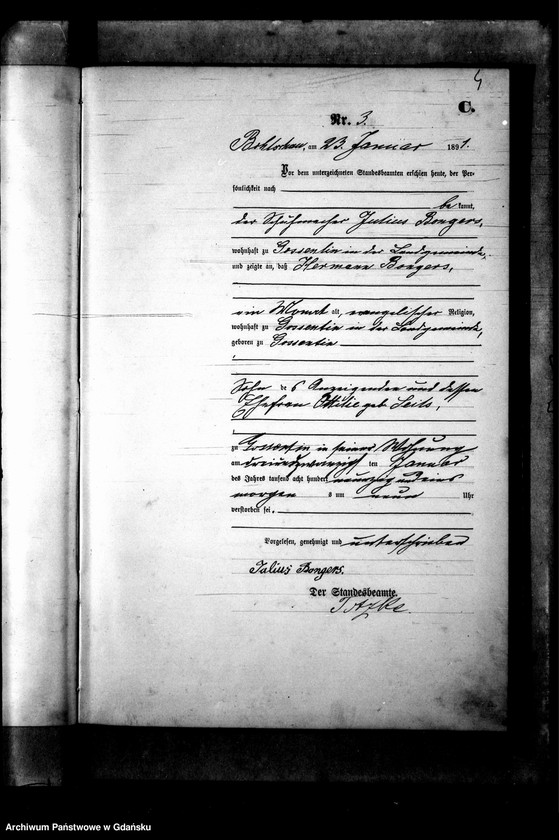 4
C.
Nr. 3.
Bohlschau, am 23. Januar 1891.
Vor dem unterzeichneten Standesbeamten erschien heute, der Per-
sönlichkeit nach
bekannt,
der Schuhmacher Julius Bongers,
wohnhaft zu Gossentin in der Landgemeinde,
und zeigte an, daß Hermann Bongers,
ein Monat alt, evangelischer Religion,
wohnhaft zu Gossentin in der Landgemeinde,
geboren zu Gossentin
Sohn des Anzeigenden und dessen
Ehefrau Ottilie geb.
zu Gossentin in seiner Wohnung
am dreiundzwanzigsten Januar
des Jahres tausend acht hundert neunzig und eins
morgens um neun Uhr
verstorben sei.
Vorgelesen, genehmigt und unterschrieben
Julius Bongers.
Der Standesbeamte.
Totzke
Archiwum Państwowe w Gdańsku